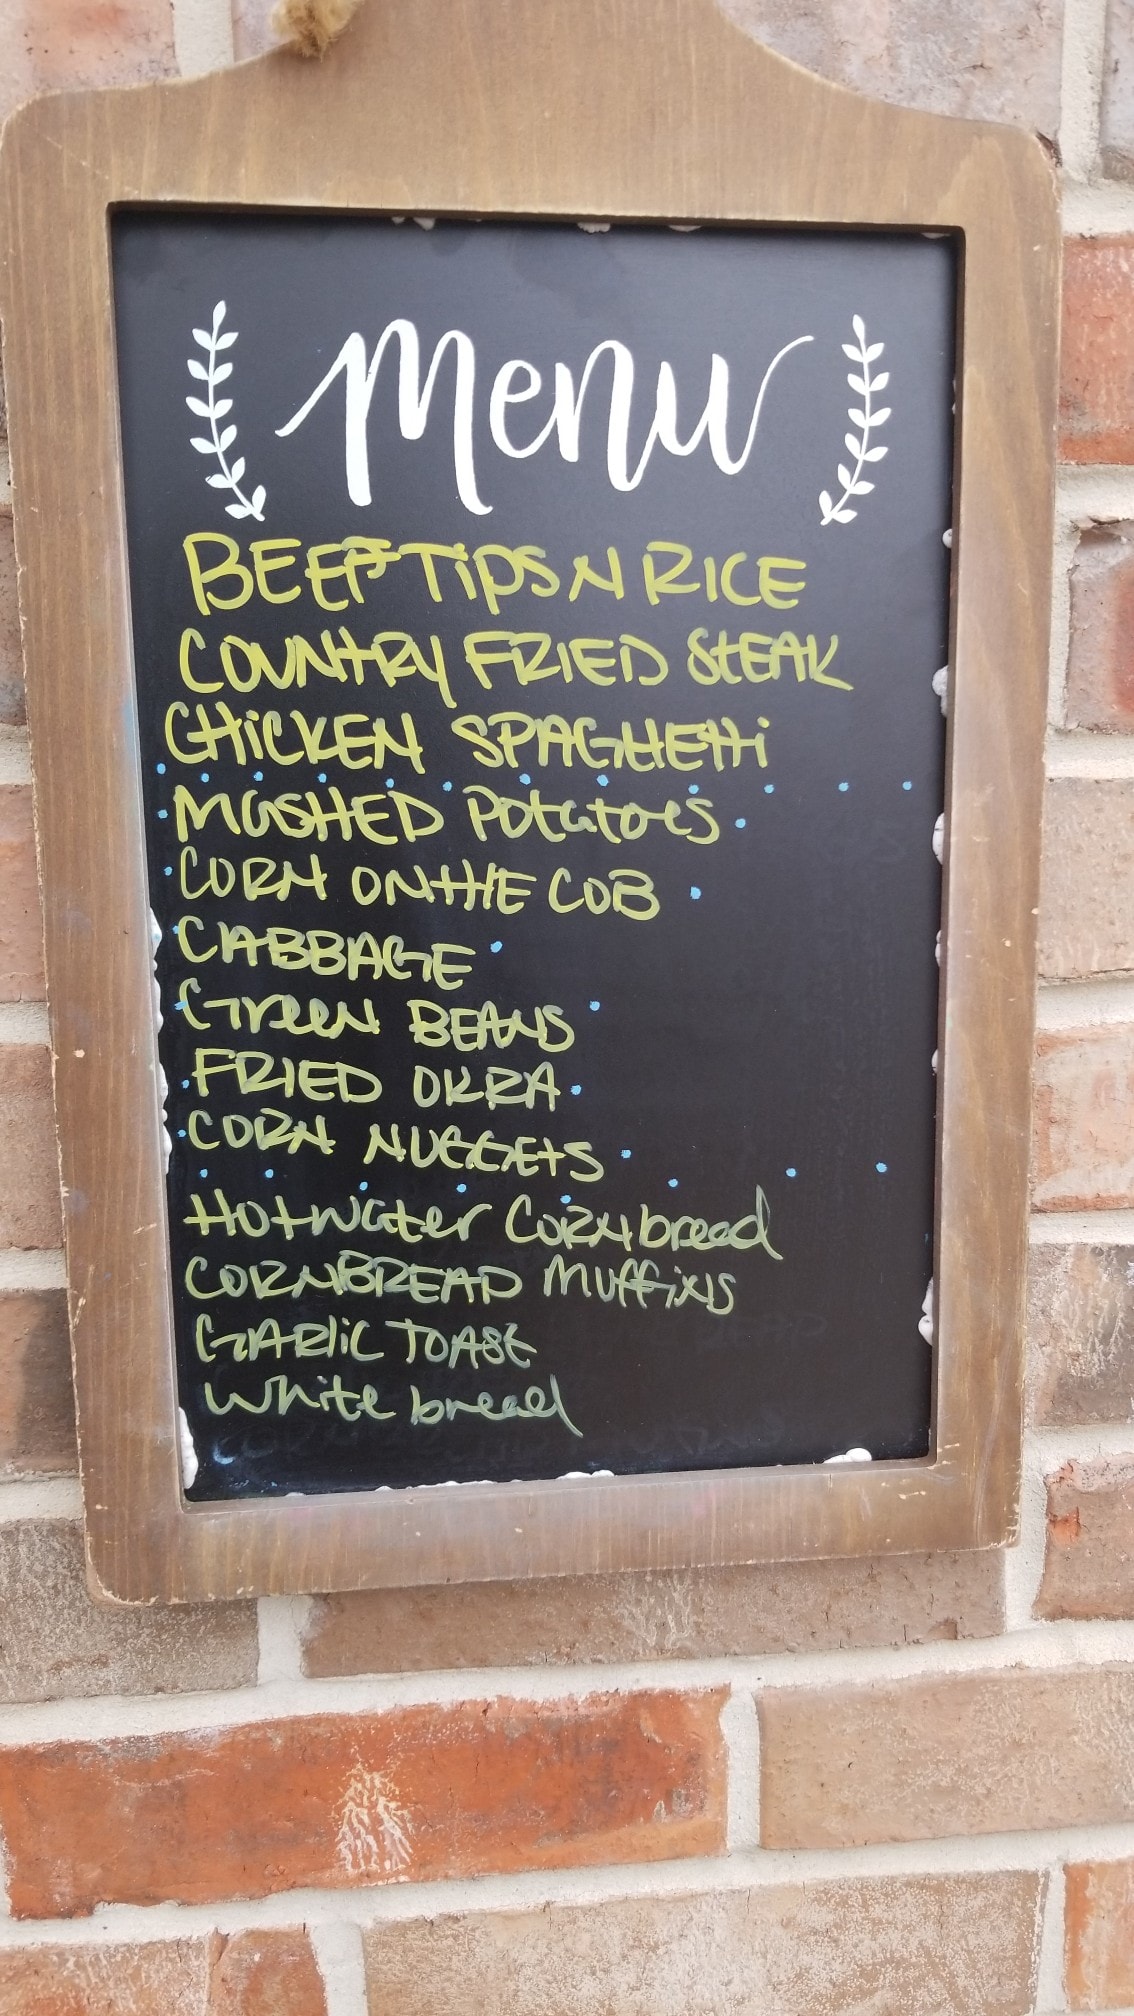 Menu
BEEF TIPS N RICE
COUNTRY FRIED STEAK
CHICKEN SPAGHETTI
MASHED POTATOES
CORN ON THE COB
CABBAGE
Green BEANS
FRIED OKRA
CORN NUGGETS
Hotwater Cornbread
CORNBREAD Muffins
GARLIC TOAST
White bread